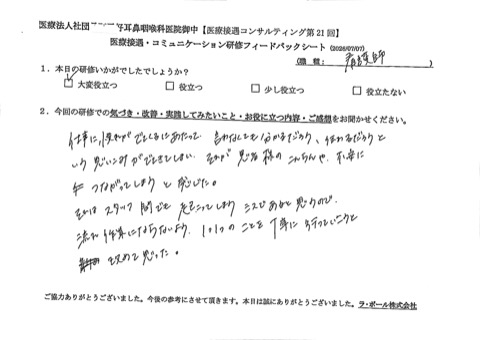 医療法人社団 耳鼻咽喉科医院御中【医療接遇コンサルティング第21回】
医療接遇・コミュニケーション研修フィードバックシート (2026/07/07)
(職種: 看護師)
1.本日の研修いかがでしたでしょうか?
大変役立つ 役立つ 少し役立つ 役立たない
2.今回の研修での気づき・改善・実践してみたいこと・お役に立つ内容・ご感想をお聞かせください。
仕事に慣れがでてくるにあたって、言わなくても分かるだろう、伝わるだろうと
いう思いこみがでてきてしまい、それが患者様の 、不安に
つながってしまうと感じた。
それはスタッフ間でも起こってしまうミスであると思うので、
流れ作業にならないよう、1つ1つのことを丁寧に行っていこうと
改めて思った。
ご協力ありがとうございました。今後の参考にさせて頂きます。本日は誠にありがとうございました。ラ・ポール株式会社